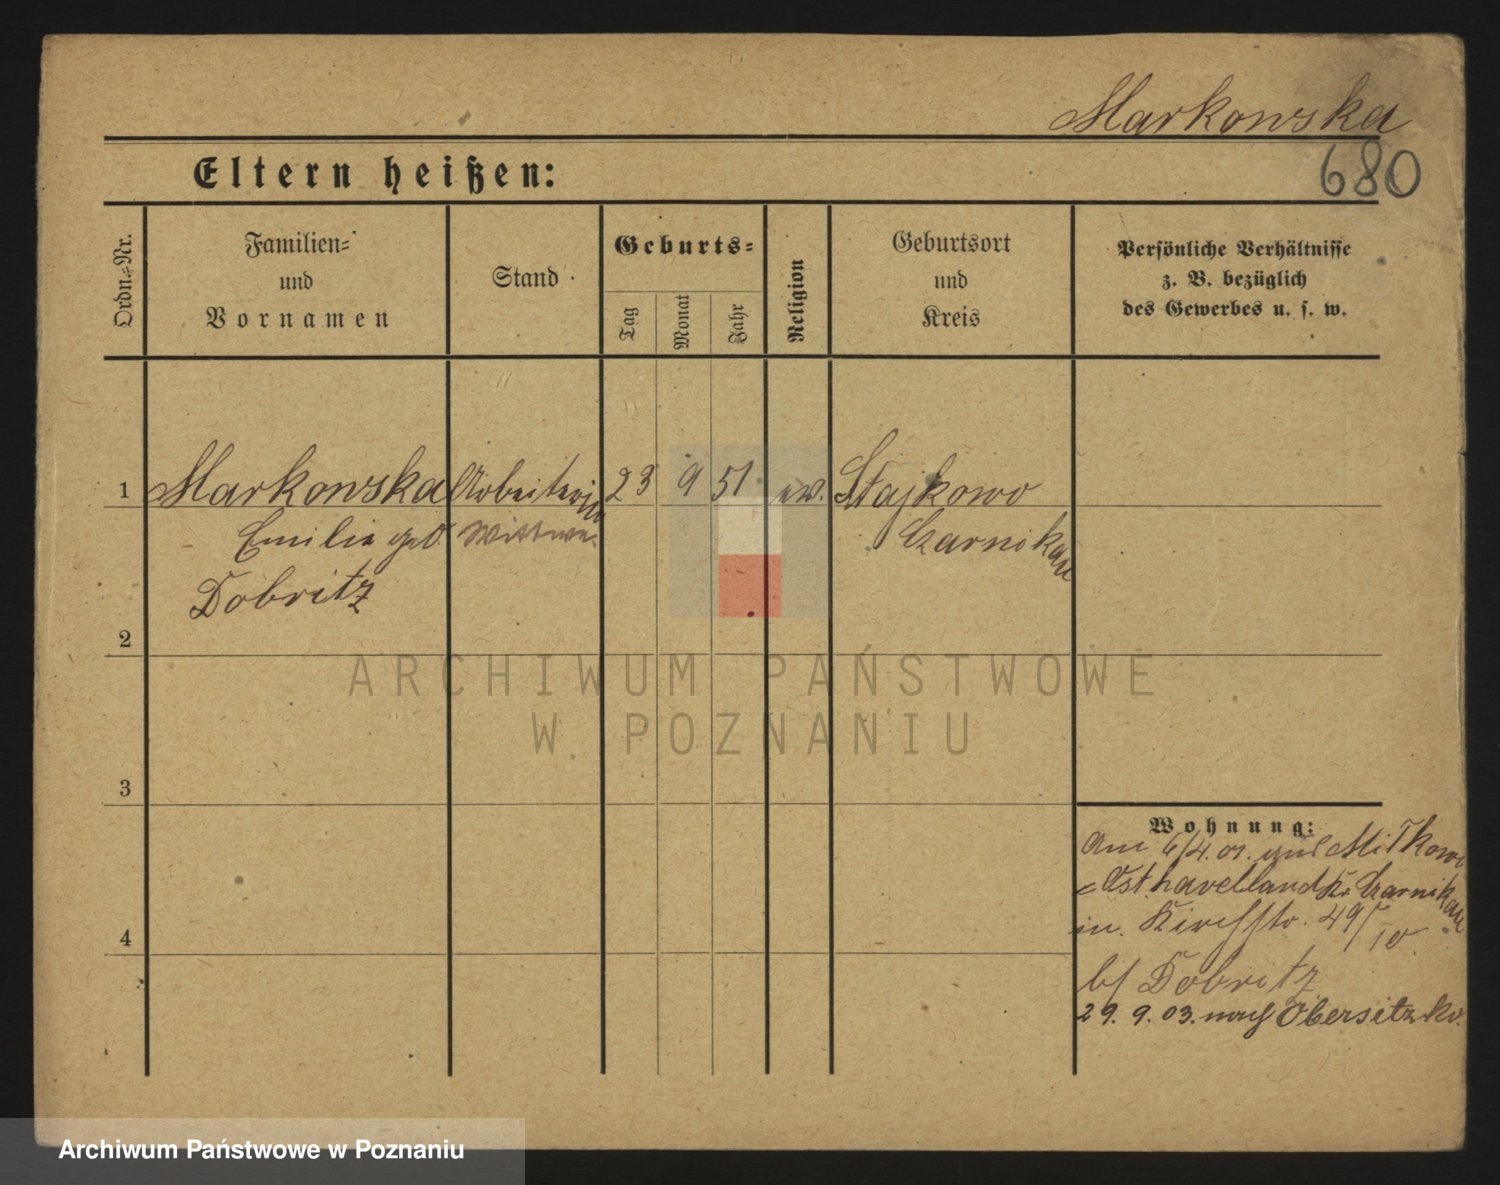 Markowska
680
Eltern heißen:
Ordn.-Nr.
Familien-
und
Vornamen
Stand
Geburts-
Tag
Monat
Jahr
Religion
Geburtsort
und
Kreis
Persönliche Verhältnisse
z. B. bezüglich
des Gewerbes u. s. w.
1 Markowska Arbeiterin 23 9 51 ev. Stajkowo
Emilie geb. Wittwe. Czarnikau
Dobritz
2
3
4
Wohnung:
Am 6/4. 01. aus Mitkowo
Osthavelland Kr. Czarnikau
in. Kirchstr. 49/10
b/ Dobritz
29. 9. 03. nach Obersitzko.
ARCHIWUM PAŃSTWOWE
W POZNANIU
Archiwum Państwowe w Poznaniu